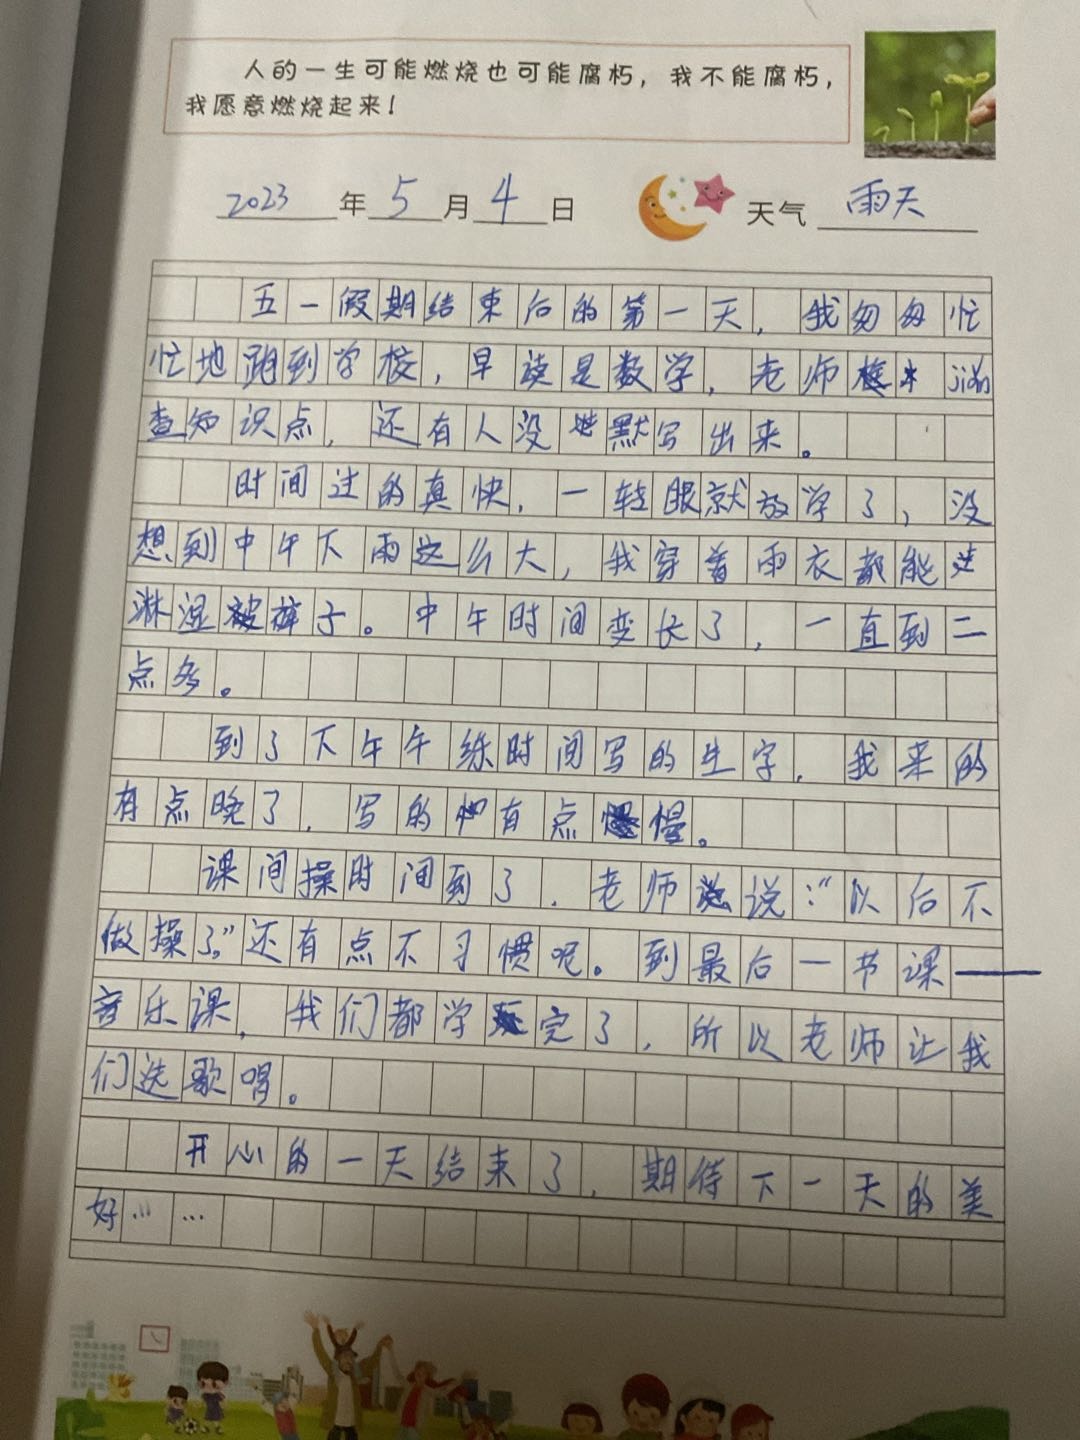 人的一生可能燃烧也可能腐朽，我不能腐朽，
我愿意燃烧起来！
2023年5月4日 天气 雨天
五一假期结束后的第一天，我匆匆忙
忙地跑到学校，早读是数学，老师 jiǎn
查知识点，还有人没默写出来。
时间过的真快，一转眼就放学了，没
想到中午下雨这么大，我穿着雨衣都能
淋湿裤子。中午时间变长了，一直到二
点多。
到了下午午练时间写的生字，我来的
有点晚了，写的有点慢。
课间操时间到了，老师说：“以后不
做操了。”还有点不习惯呢。到最后一节课——
音乐课，我们都学完了，所以老师让我
们选歌唱。
开心的一天结束了，期待下一天的美
好……